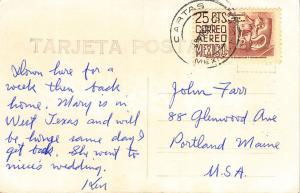 CARTAS
MEX
25 CTS
CORREO
AEREO
MEXICO
TARJETA POSTAL
Down here for a
week then back
home. Mary is in
West Texas and will
be home same day I
get back. She went to
niece's wedding.
John Farr
88 Glenwood Ave
Portland Maine
U.S.A.